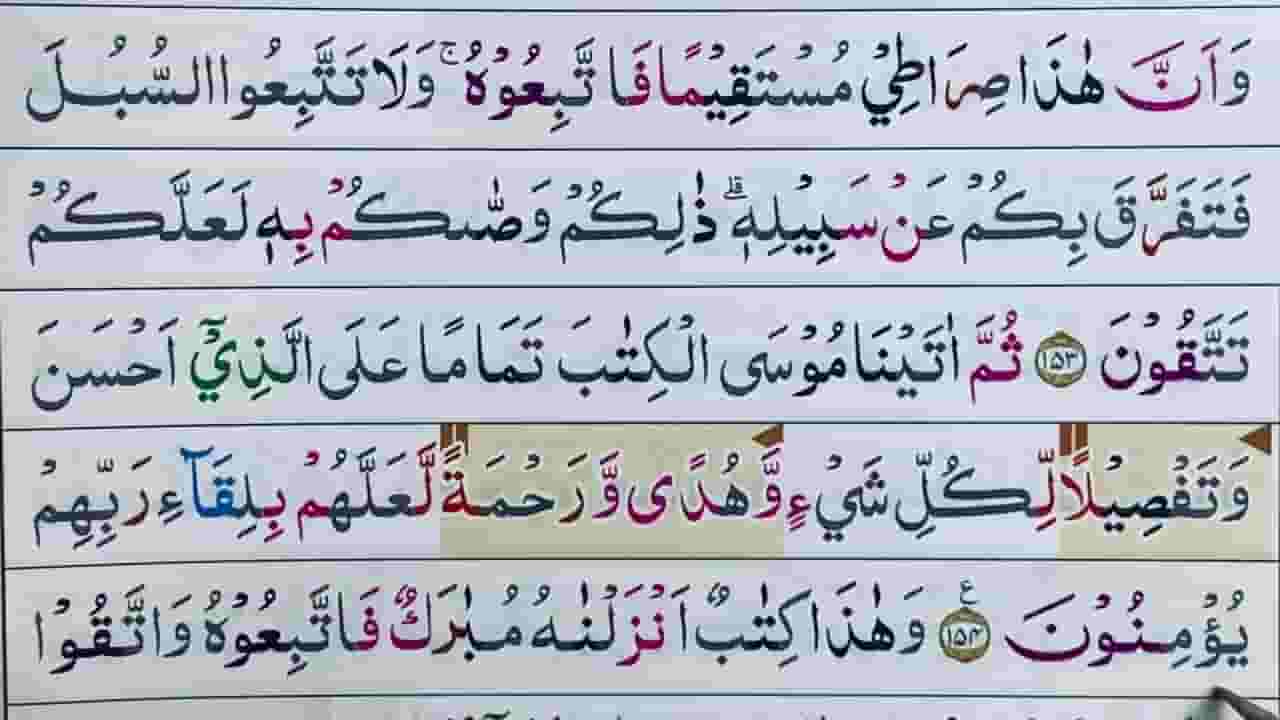 وَاَنَّ هٰذَا صِرَاطِيْ مُسْتَقِيْمًا فَاتَّبِعُوْهُ ۚ وَلَا تَتَّبِعُوا السُّبُلَ
فَتَفَرَّقَ بِكُمْ عَنْ سَبِيْلِهٖ ؕ ذٰلِكُمْ وَصّٰىكُمْ بِهٖ لَعَلَّكُمْ
تَتَّقُوْنَ ﴿۱۵۳﴾ ثُمَّ اٰتَيْنَا مُوْسَى الْكِتٰبَ تَمَامًا عَلَى الَّذِيْۤ اَحْسَنَ
وَتَفْصِيْلًا لِّكُلِّ شَيْءٍ وَّهُدًى وَّرَحْمَةً لَّعَلَّهُمْ بِلِقَآءِ رَبِّهِمْ
يُؤْمِنُوْنَ ﴿۱۵۴﴾ ع وَهٰذَا كِتٰبٌ اَنْزَلْنٰهُ مُبٰرَكٌ فَاتَّبِعُوْهُ وَاتَّقُوْا